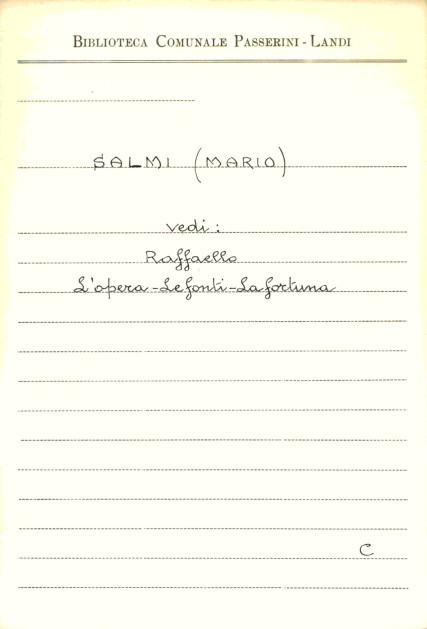 BIBLIOTECA COMUNALE PASSERINI - LANDI
SALMI (MARIO)
vedi :
Raffaello
L'opera - Le fonti - La fortuna
C